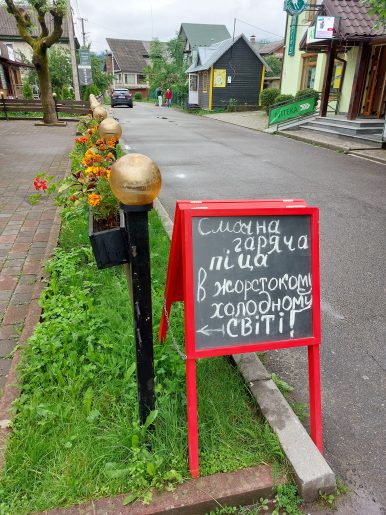 Смачна
гаряча
піца
в жорстокому
холодному
світі!